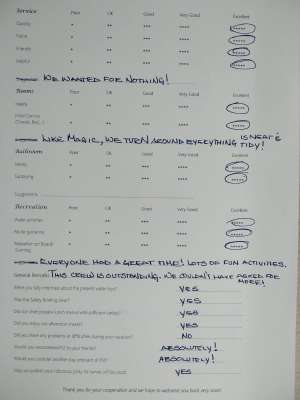 Service Poor OK Good Very Good Excellent
Quality • •• ••• •••• •••••
• •• ••• •••• •••••
Friendly • •• ••• •••• •••••
Helpful • •• ••• •••• •••••
WE WANTED FOR NOTHING!
Rooms Poor OK Good Very Good Excellent
• •• ••• •••• •••••
• •• ••• •••• •••••
LIKE MAGIC, WE TURN AROUND EVERYTHING IS NEAT & TIDY!
Bathroom Poor OK Good Very Good Excellent
• •• ••• •••• •••••
Supplying • •• ••• •••• •••••
Suggestions
Recreation Poor OK Good Very Good Excellent
Water activities • •• ••• •••• •••••
• •• ••• •••• •••••
Relaxation on Board • •• ••• •••• •••••
EVERYONE HAD A GREAT TIME! LOTS OF FUN ACTIVITIES.
General Remarks THIS CREW IS OUTSTANDING. WE COULDN'T HAVE ASKED FOR MORE!
Were you fully informed about the present water toys? YES
Was the Safety Briefing clear? YES
Did our chef prepare your menus with sufficient variety? YES
Did you enjoy our afternoon snacks? YES
Did you have any problems or difficulties during your vacation? NO
Would you recommend to your friends? ABSOLUTELY!
Would you consider another trip onboard of ABSOLUTELY!
YES
Thank you for your cooperation and we hope to welcome you back very soon!